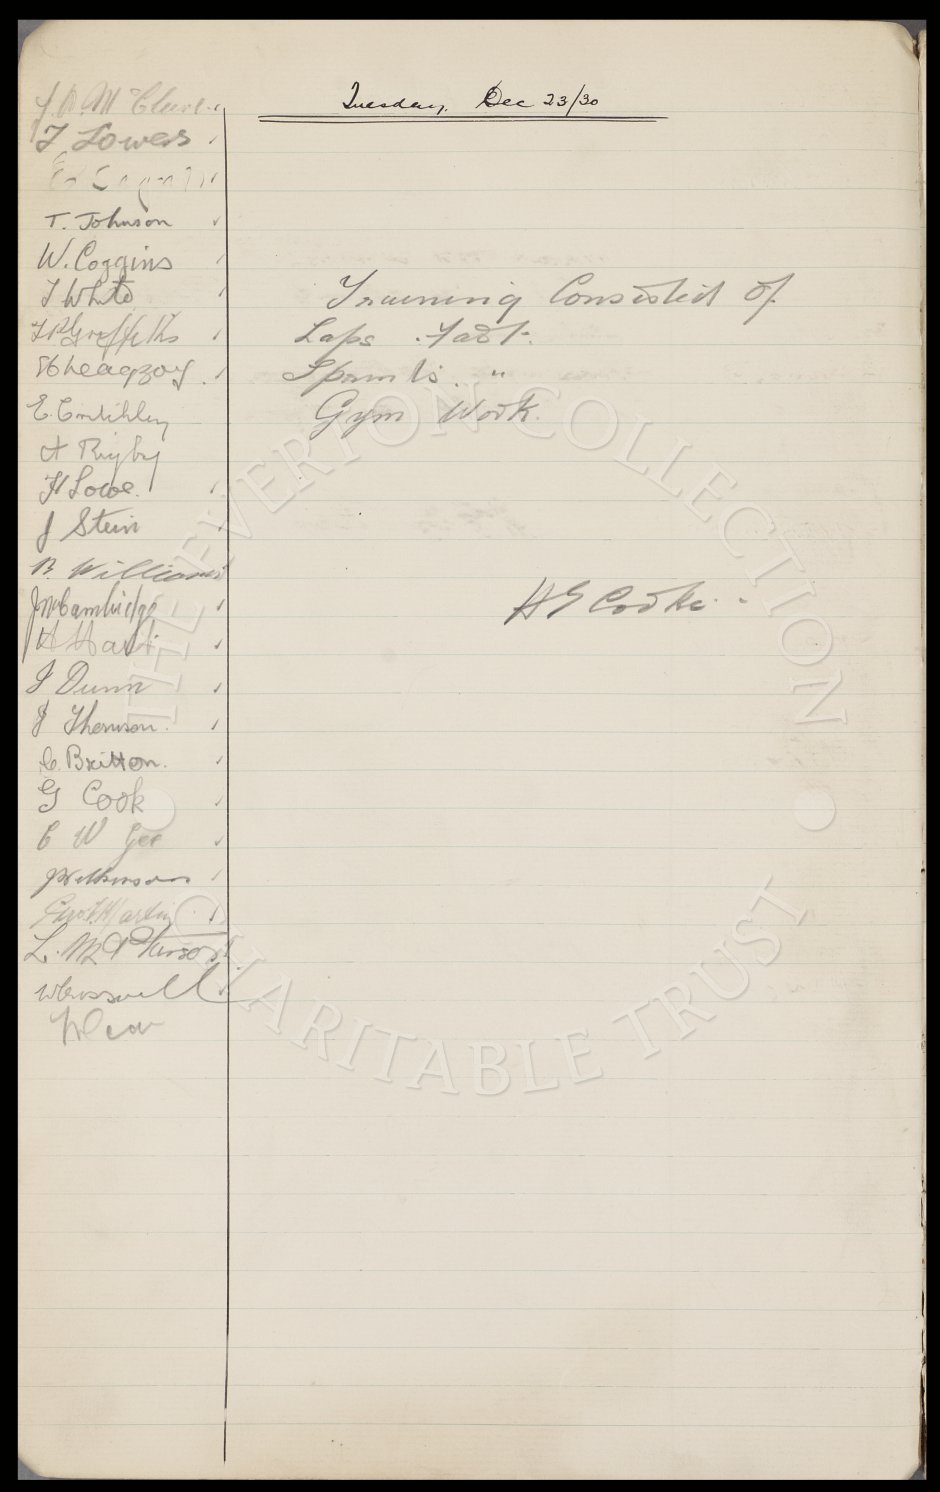 Tuesday. Dec 23/30
T Lowers
T. Johnson
W. Coggins
T White
T P Griffiths
E. Critchley
A Rigby
H Lowe.
J Stein
B. Williams
J McCambridge
H Hardy
J Dunn
J Thomson.
C. Britton.
G Cook
C W Gee
J Wilkinson
Geo. Martin
L. McPherson
W Cresswell
Training Consisted of
Laps. Fast.
Sprints. "
Gym Work.
H E Cooke.
THE EVERTON COLLECTION
CHARITABLE TRUST